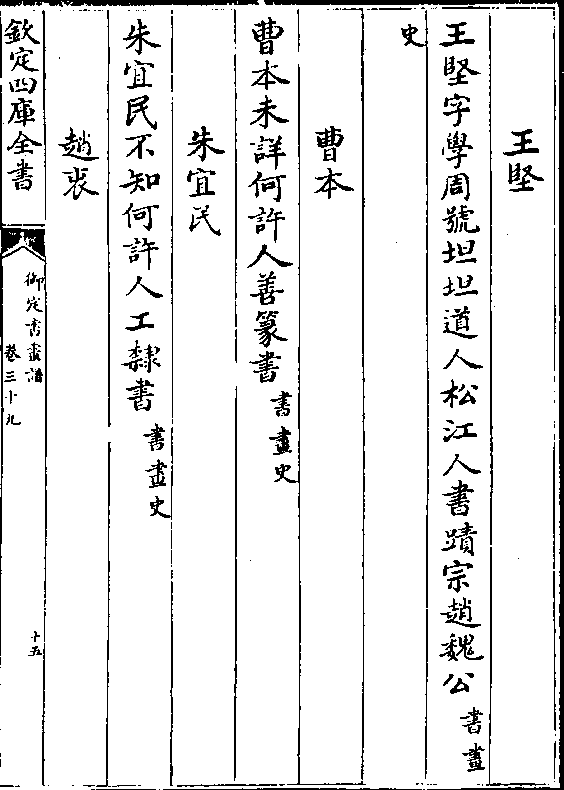 王堅
王堅字學周號坦坦道人松江人書蹟宗趙魏公書畫
史
曹本
曹本未詳何許人善篆書書畫史
朱宜民
朱宜民不知何許人工隸書書畫史
趙裴
欽定四庫全書
御定書畫譜
卷三十九
十五